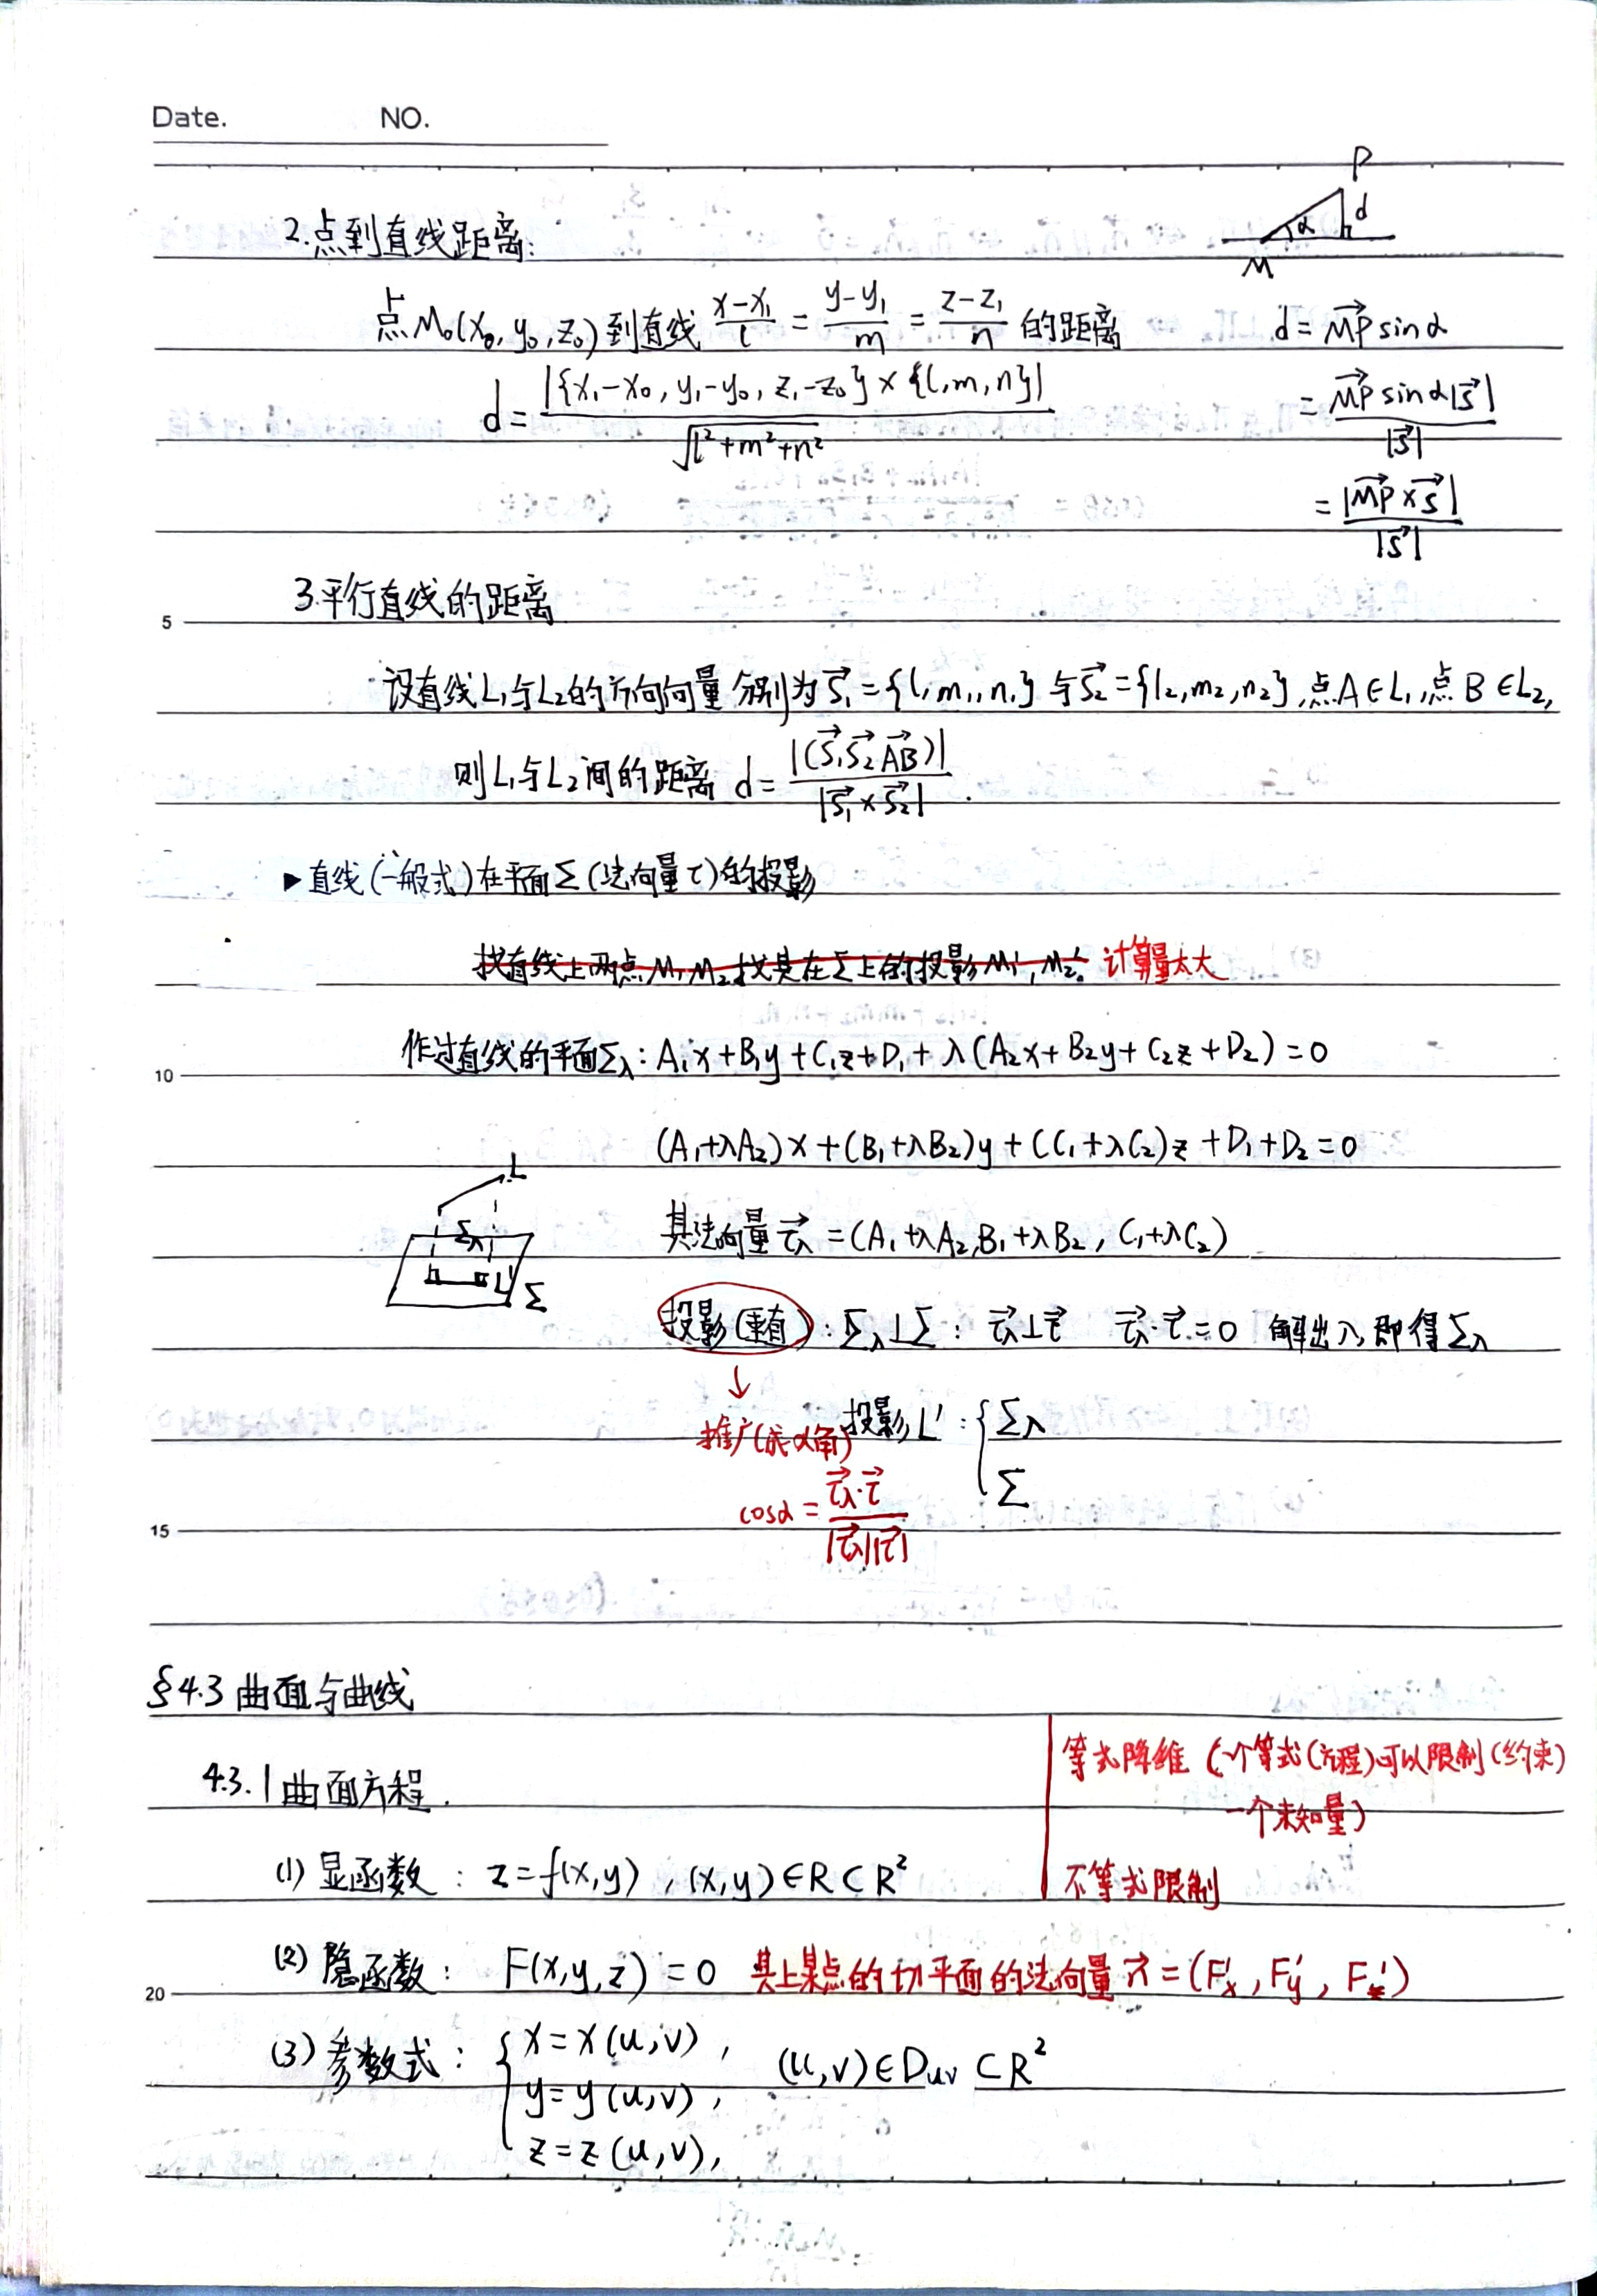 Date. NO.
P
d
α
M
2.点到直线距离:
点M₀(x₀,y₀,z₀)到直线 (x-x₁)/l = (y-y₁)/m = (z-z₁)/n 的距离
d = |{x₁-x₀, y₁-y₀, z₁-z₀}×{l,m,n}| / √(l²+m²+n²)
d = \vec{MP} sinα
= \vec{MP} sinα|\vec{s}| / |\vec{s}|
= |\vec{MP}×\vec{s}| / |\vec{s}|
3.平行直线的距离
5
设直线L₁与L₂的方向向量分别为\vec{s₁}={l₁,m₁,n₁}与\vec{s₂}={l₂,m₂,n₂},点A∈L₁,点B∈L₂,
则L₁与L₂间的距离 d = |(\vec{s₁}\vec{s₂}\vec{AB})| / |\vec{s₁}×\vec{s₂}| .
▶直线(一般式)在平面Σ(法向量τ)的投影
找直线上两点M₁M₂找其在Σ上的投影M₁',M₂'。计算量太大
作过直线的平面Σλ: A₁x+B₁y+C₁z+D₁+λ(A₂x+B₂y+C₂z+D₂)=0
10
(A₁+λA₂)x+(B₁+λB₂)y+(C₁+λC₂)z+D₁+D₂=0
L
Σλ
L'
Σ
其法向量\vec{τλ}=(A₁+λA₂,B₁+λB₂,C₁+λC₂)
投影(垂直): Σλ⊥Σ: \vec{τλ}⊥\vec{τ} \vec{τλ}·\vec{τ}=0 解出λ,即得Σλ
↓
推广(成α角)
投影L': { Σλ
Σ
cosα = \vec{τλ}·\vec{τ} / |\vec{τλ}||\vec{τ}|
15
§4.3 曲面与曲线
4.3.1 曲面方程.
等式降维(一个等式(方程)可以限制(约束)
一个未知量)
不等式限制
(1) 显函数: z=f(x,y),(x,y)∈R⊂R²
(2) 隐函数: F(x,y,z)=0 其上某点的切平面的法向量\vec{n}=(F'x,F'y,F'z)
20
(3) 参数式: { x=x(u,v), (u,v)∈Duv⊂R²
y=y(u,v),
z=z(u,v),